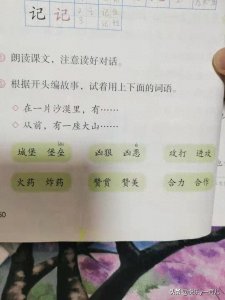 记 记
朗读课文，注意读好对话。
根据开头编故事，试着用上下面的词语。
◇ 在一片沙漠里，有……
◇ 从前，有一座大山……
城堡 堡垒 凶狠 凶恶 攻打 进攻
火药 炸药 赞赏 赞美 合力 合作